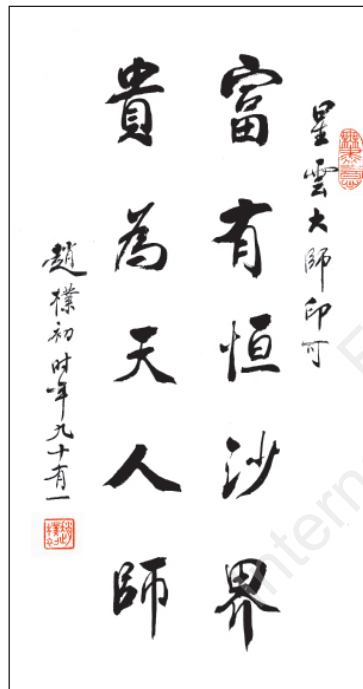 星雲大師印可
富有恒沙界
貴為天人師
趙樸初时年九十有一